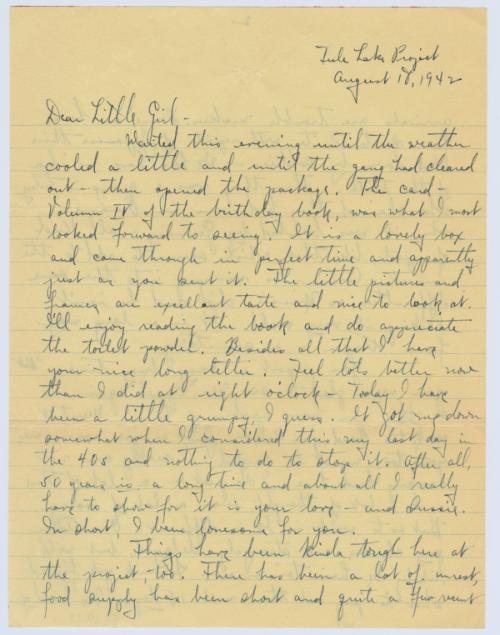 Tule Lake Project
August 18, 1942
Dear Little Girl -
Waited this evening until the weather
cooled a little and until the gang had cleared
out - then opened the package. The card -
Volumn IV of the birthday book, was what I most
looked forward to seeing. It is a lovely box
and came through in perfect time and apparently
just as you sent it. The little pictures and
frames are excellant taste and nice to look at.
I'll enjoy reading the book and do appreciate
the toilet powder. Besides all that I have
your nice long letter. Feel lots better now
than I did at eight o'clock - Today I have
been a little grumpy, I guess. It got me down
somewhat when I considered this my last day in
the 40s and nothing to do to stop it. After all,
50 years is a long time and about all I really
have to show for it is your love - and Sussie.
In short, I been lonesome for you.
Things have been kinda tough here at
the project, too. There has been a lot of unrest,
food supply has been short and quite a few went